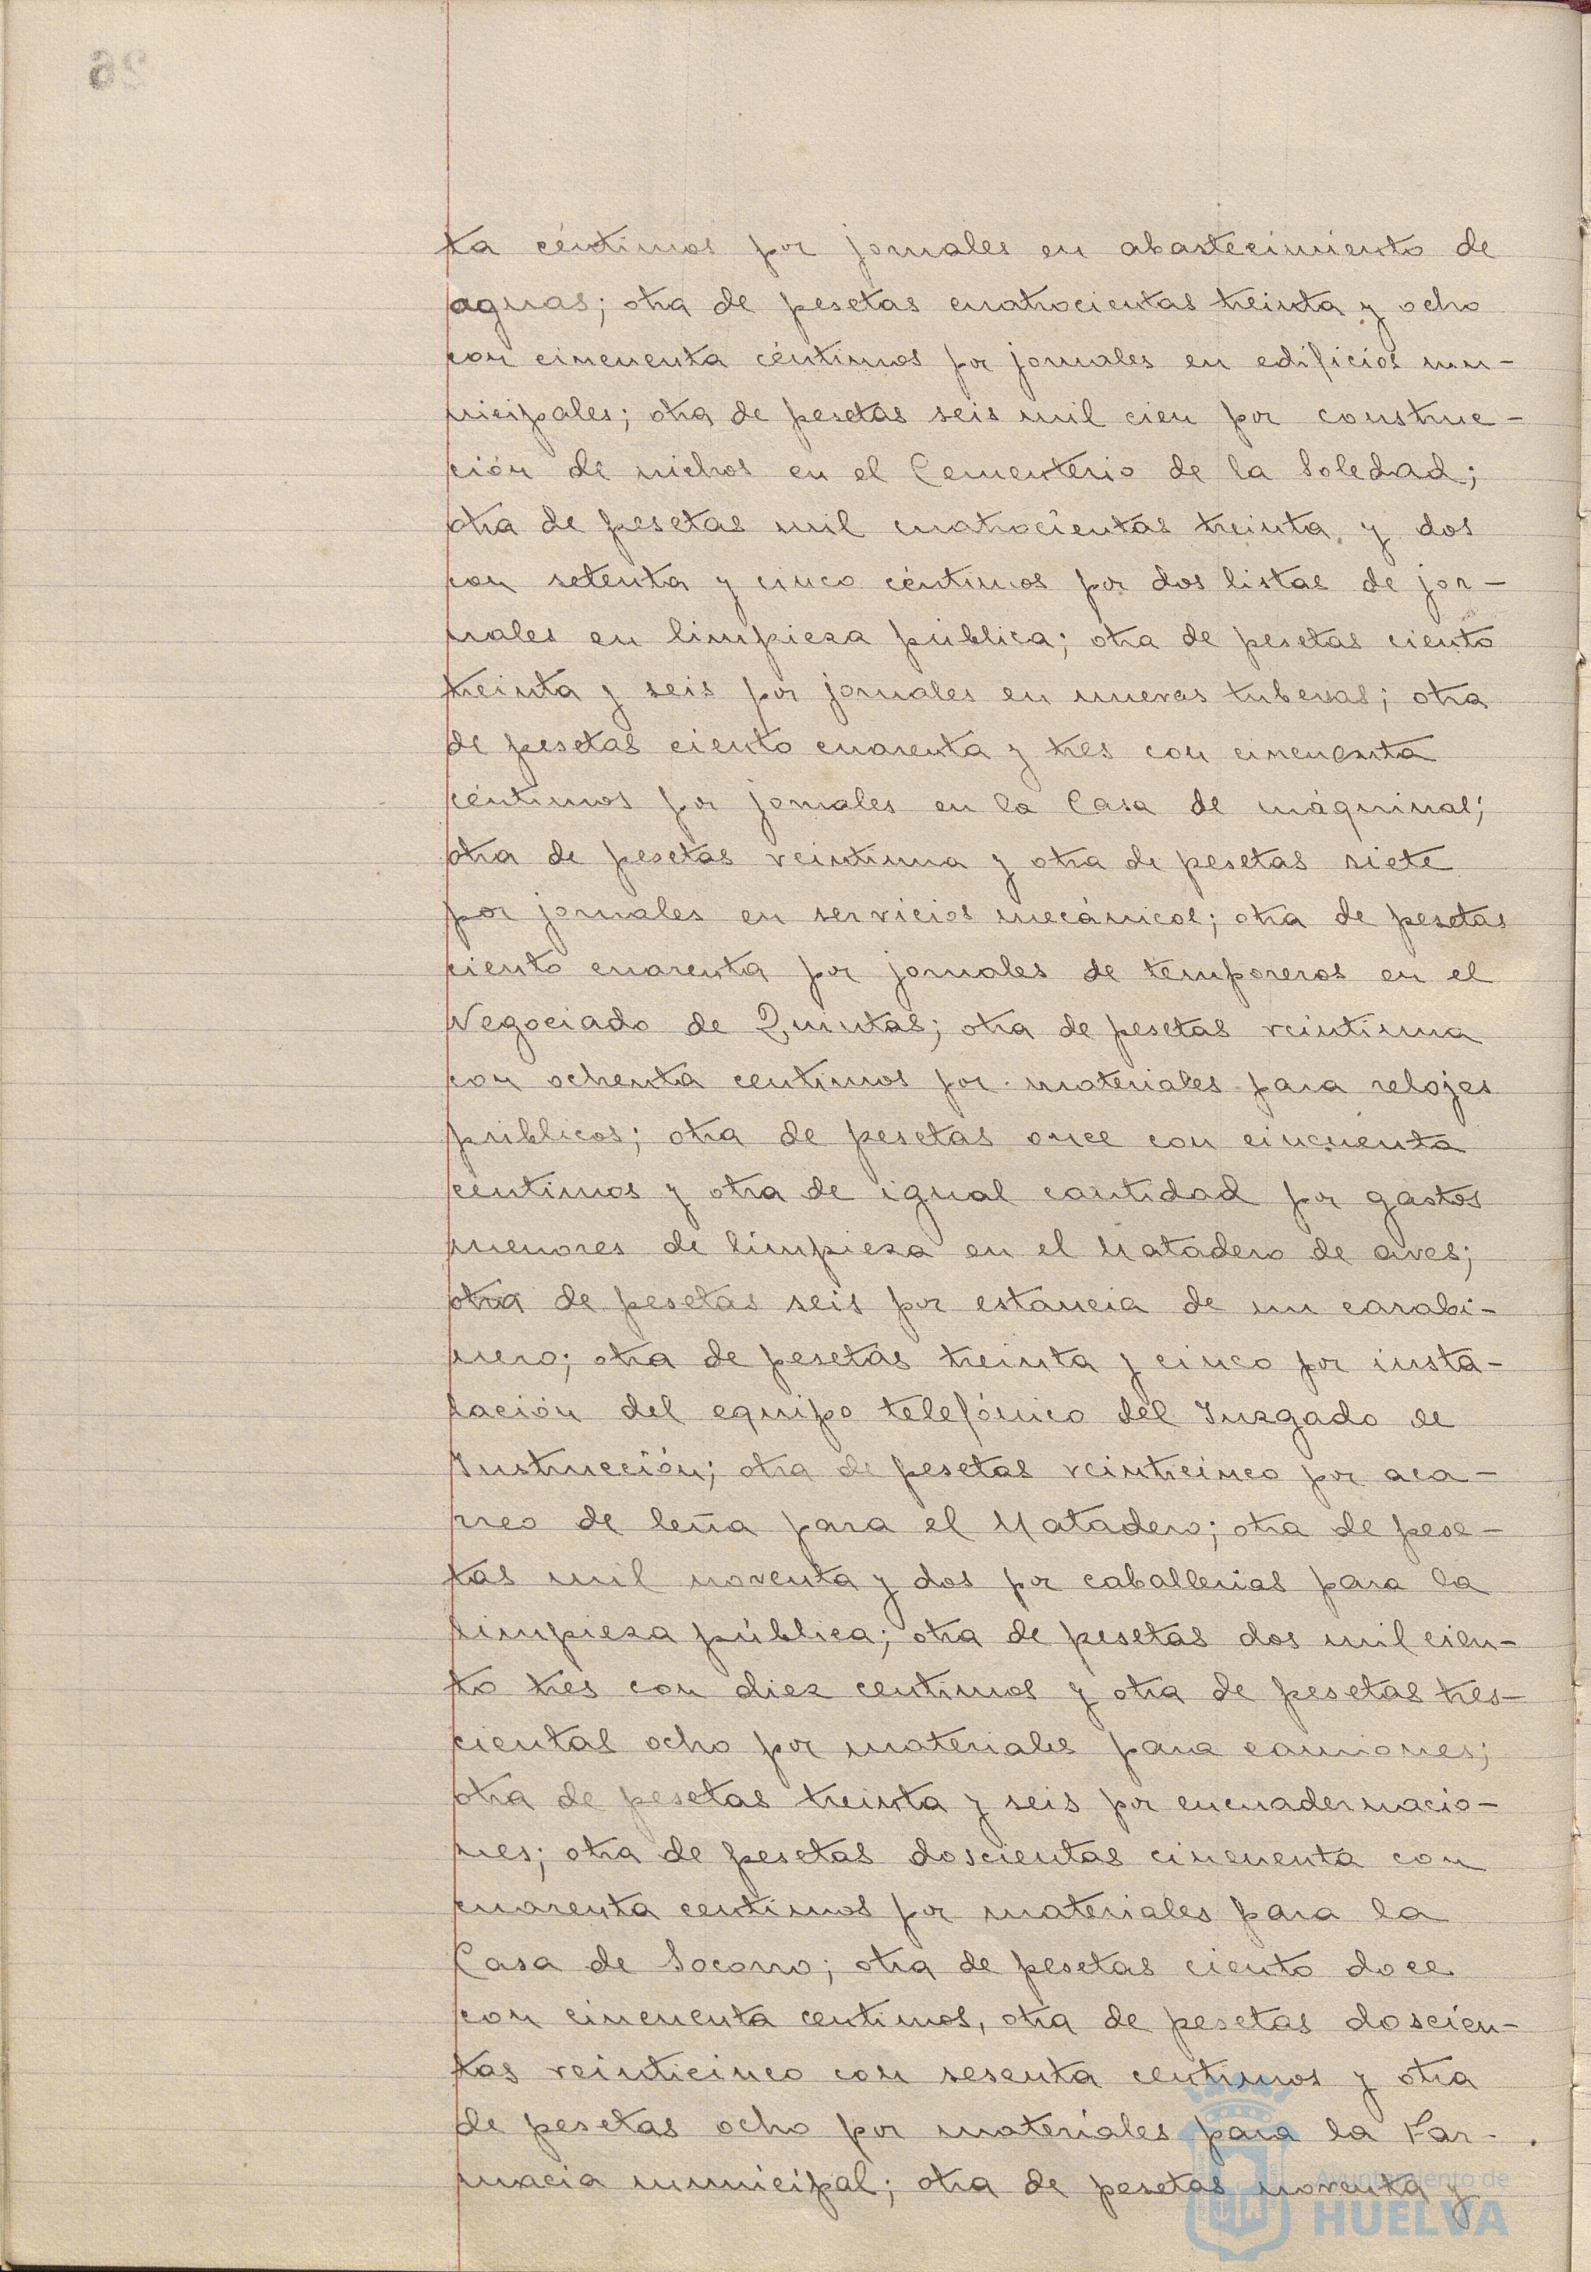 26
ta céntimos por jornales en abastecimiento de
aguas; otra de pesetas cuatrocientas treinta y ocho
con cincuenta céntimos por jornales en edificios mu-
nicipales; otra de pesetas seis mil cien por construc-
ción de nichos en el Cementerio de la Soledad;
otra de pesetas mil cuatrocientas treinta y dos
con setenta y cinco céntimos por dos listas de jor-
nales en limpieza pública; otra de pesetas ciento
treinta y seis por jornales en nuevas tuberias; otra
de pesetas ciento cuarenta y tres con cincuenta
céntimos por jornales en la Casa de máquinas;
otra de pesetas veintiuna y otra de pesetas siete
por jornales en servicios mecánicos; otra de pesetas
ciento cuarenta por jornales de temporeros en el
Negociado de Quintas; otra de pesetas veintiuna
con ochenta centimos por materiales para relojes
públicos; otra de pesetas once con cincuenta
céntimos y otra de igual cantidad por gastos
menores de limpieza en el Matadero de aves;
otra de pesetas seis por estancia de un carabi-
nero; otra de pesetas treinta y cinco por insta-
lación del equipo telefónico del Juzgado de
Instrucción; otra de pesetas veinticinco por aca-
rreo de leña para el Matadero; otra de pese-
tas mil noventa y dos por caballerias para la
limpieza pública; otra de pesetas dos mil cien-
to tres con diez centimos y otra de pesetas tres-
cientas ocho por materiales para camiones;
otra de pesetas treinta y seis por encuadernacio-
nes; otra de pesetas doscientas cincuenta con
cuarenta centimos por materiales para la
Casa de Socorro; otra de pesetas ciento doce
con cincuenta centimos, otra de pesetas doscien-
tas veinticinco con sesenta centimos y otra
de pesetas ocho por materiales para la Far-
macia municipal; otra de pesetas noventa y
Ayuntamiento de
HUELVA